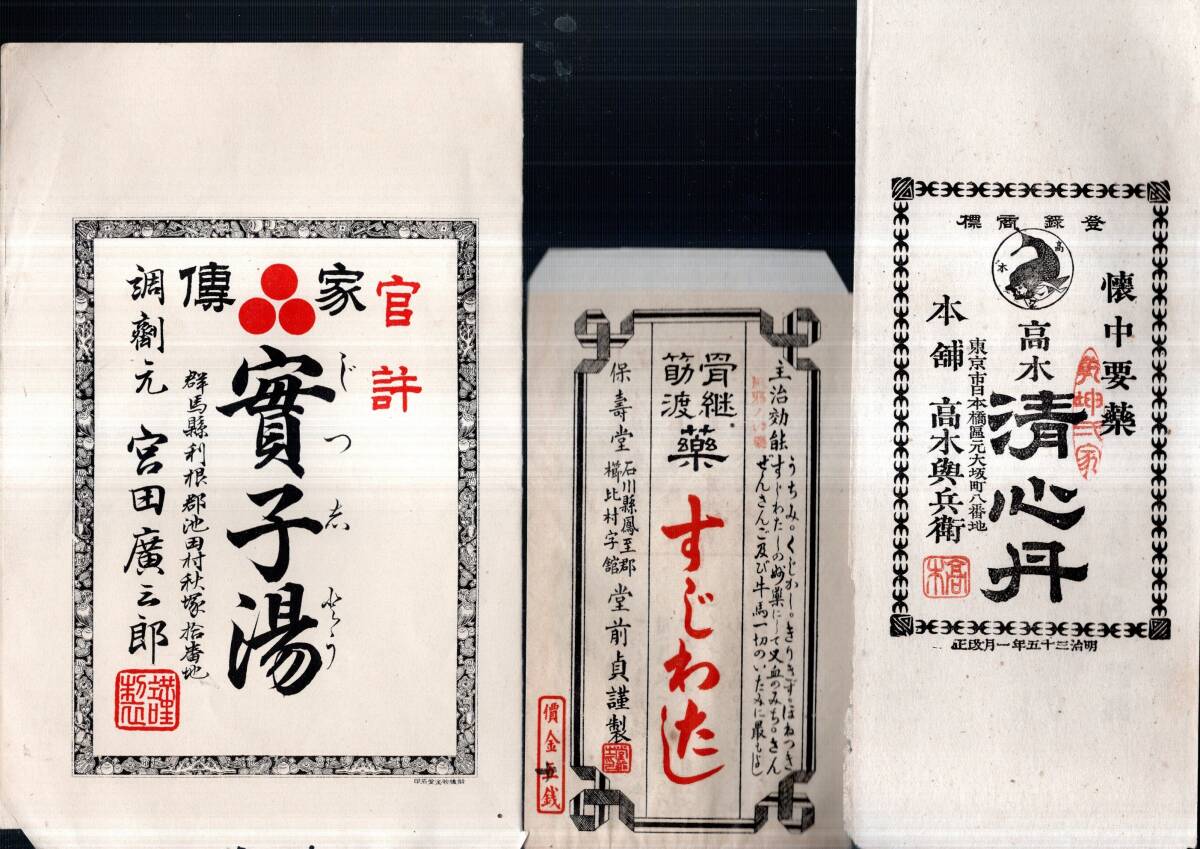 官許
家傳
實子湯
じつしとう
群馬縣利根郡池田村秋塚拾番地
調劑元 宮田廣三郎
謹製
主治効能
うちみ。くじかし。きりきず。ほねつき
すじわたしの妙藥にして又血のみち。さん
ぜんさんご及び牛馬一切のいたみに最もよし
骨継
筋渡
藥
すじわたし
石川縣鳳至郡
櫛比村字館
保壽堂 堂前貞謹製
價金五銭
登錄商標
高木
懷中要藥
高木
清心丹
東京市日本橋區元大坂町八番地
本舖 高木與兵衛
高木
明治三十五年一月改正